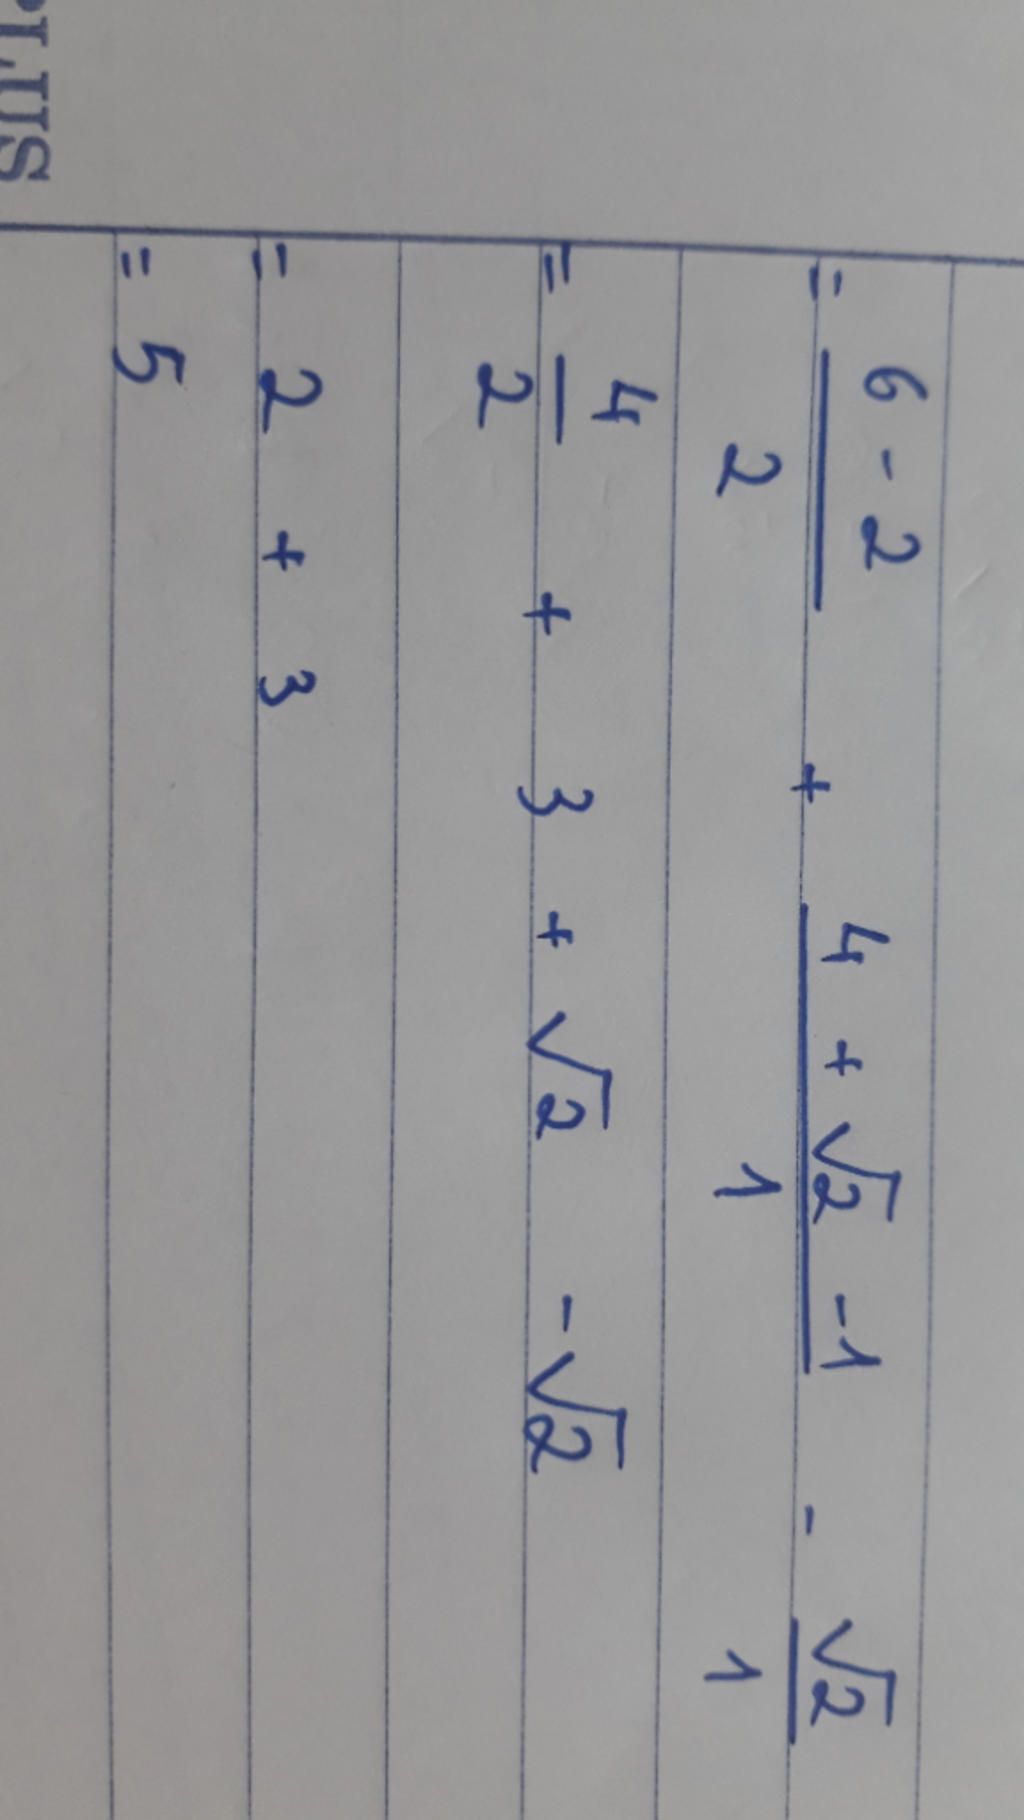 PLUS
= \frac{6 - 2}{2} + \frac{4 + \sqrt{2} - 1}{1} - \frac{\sqrt{2}}{1}
= \frac{4}{2} + 3 + \sqrt{2} - \sqrt{2}
= 2 + 3
= 5